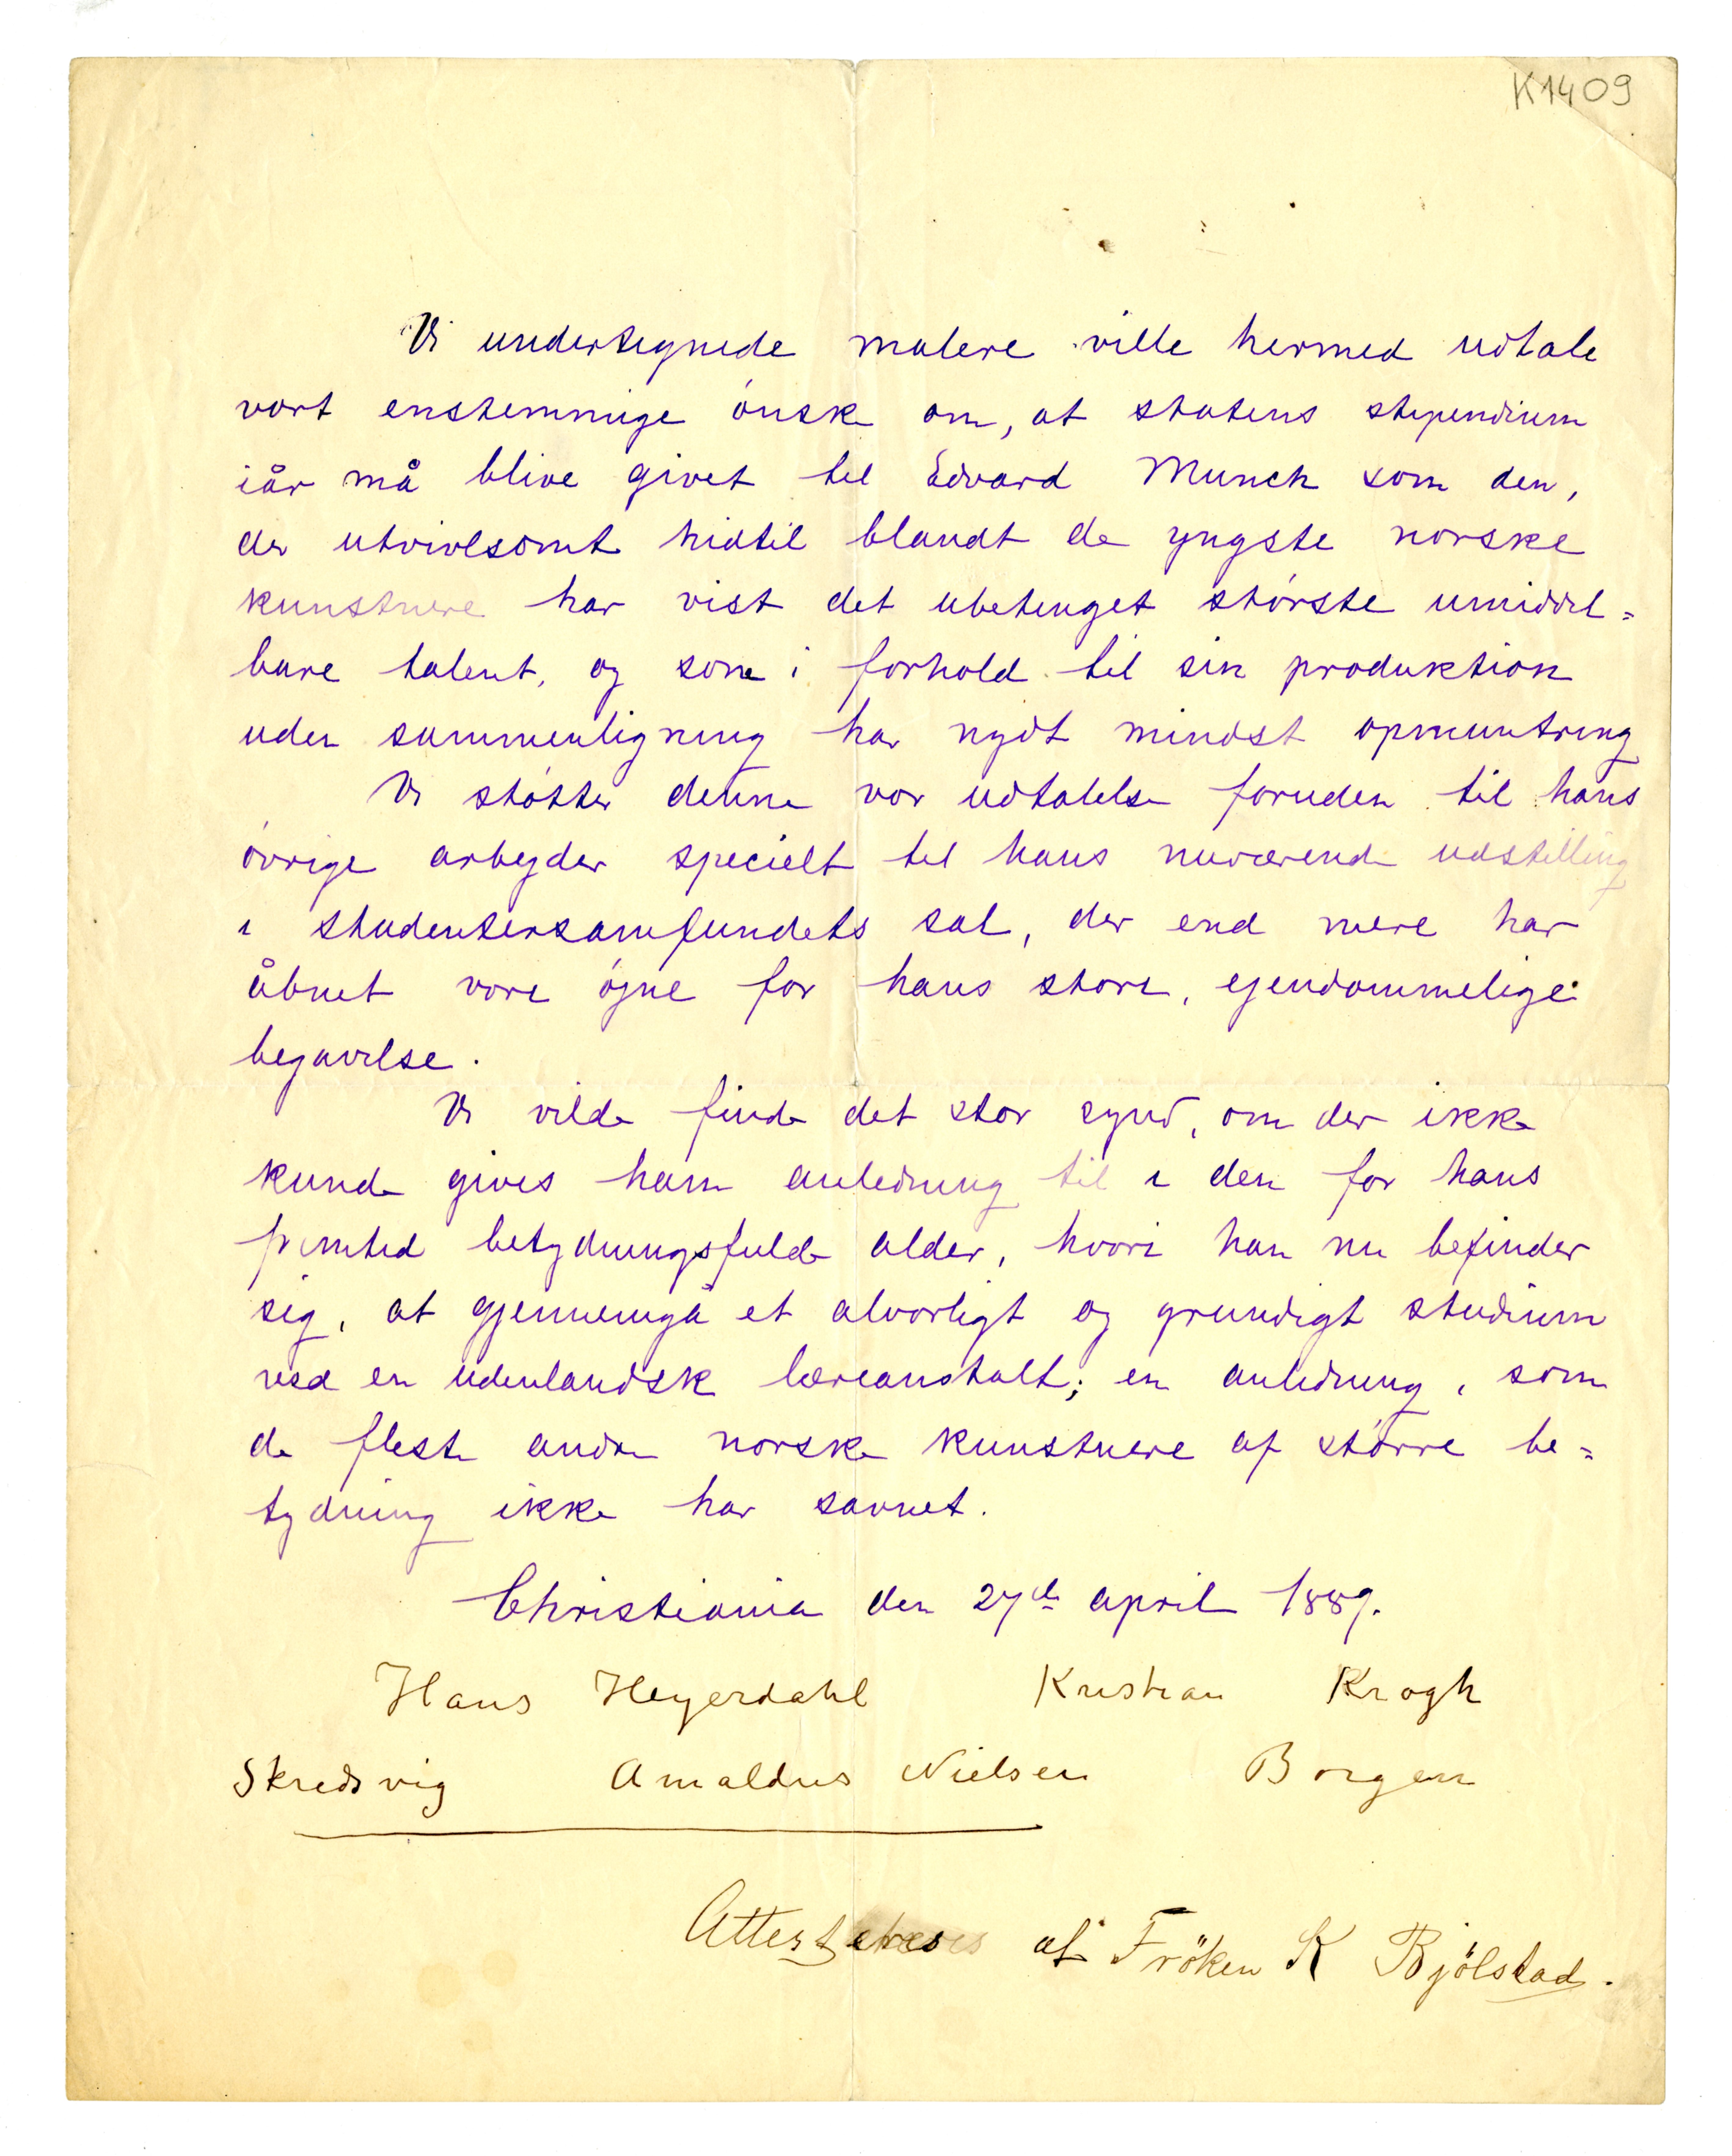 K1409
Vi undertegnede malere ville hermed udtale
vort enstemmige ónske om, at statens stipendium
iår må blive givet til Edvard Munch som den,
der utvivlsomt hidtil blandt de yngste norske
kunstnere har vist det ubetinget stórste umiddel=
bare talent, og som i forhold til sin produktion
uden sammenligning har nydt mindst opmuntring
Vi stótter denne vor udtalelse foruden til hans
óvrige arbejder specielt til hans nuværende udstilling
i studentersamfundets sal, der end mere har
åbnet vore ójne for hans store, ejendommelige
begavelse.
Vi vilde finde det stor synd, om der ikke
kunde gives ham anledning til i den for hans
fremtid betydningsfulde alder, hvori han nu befinder
sig, at gjennemgå et alvorligt og grundigt studium
ved en udenlandsk læreanstalt; en anledning, som
de fleste andre norske kunstnere af stórre be=
tydning ikke har savnet.
Christiania den 27de april 1889.
Hans Heyerdahl Kristian Krogh
Skredsvig Amaldus Nielsen Borgen
af Fröken K Bjölstad.